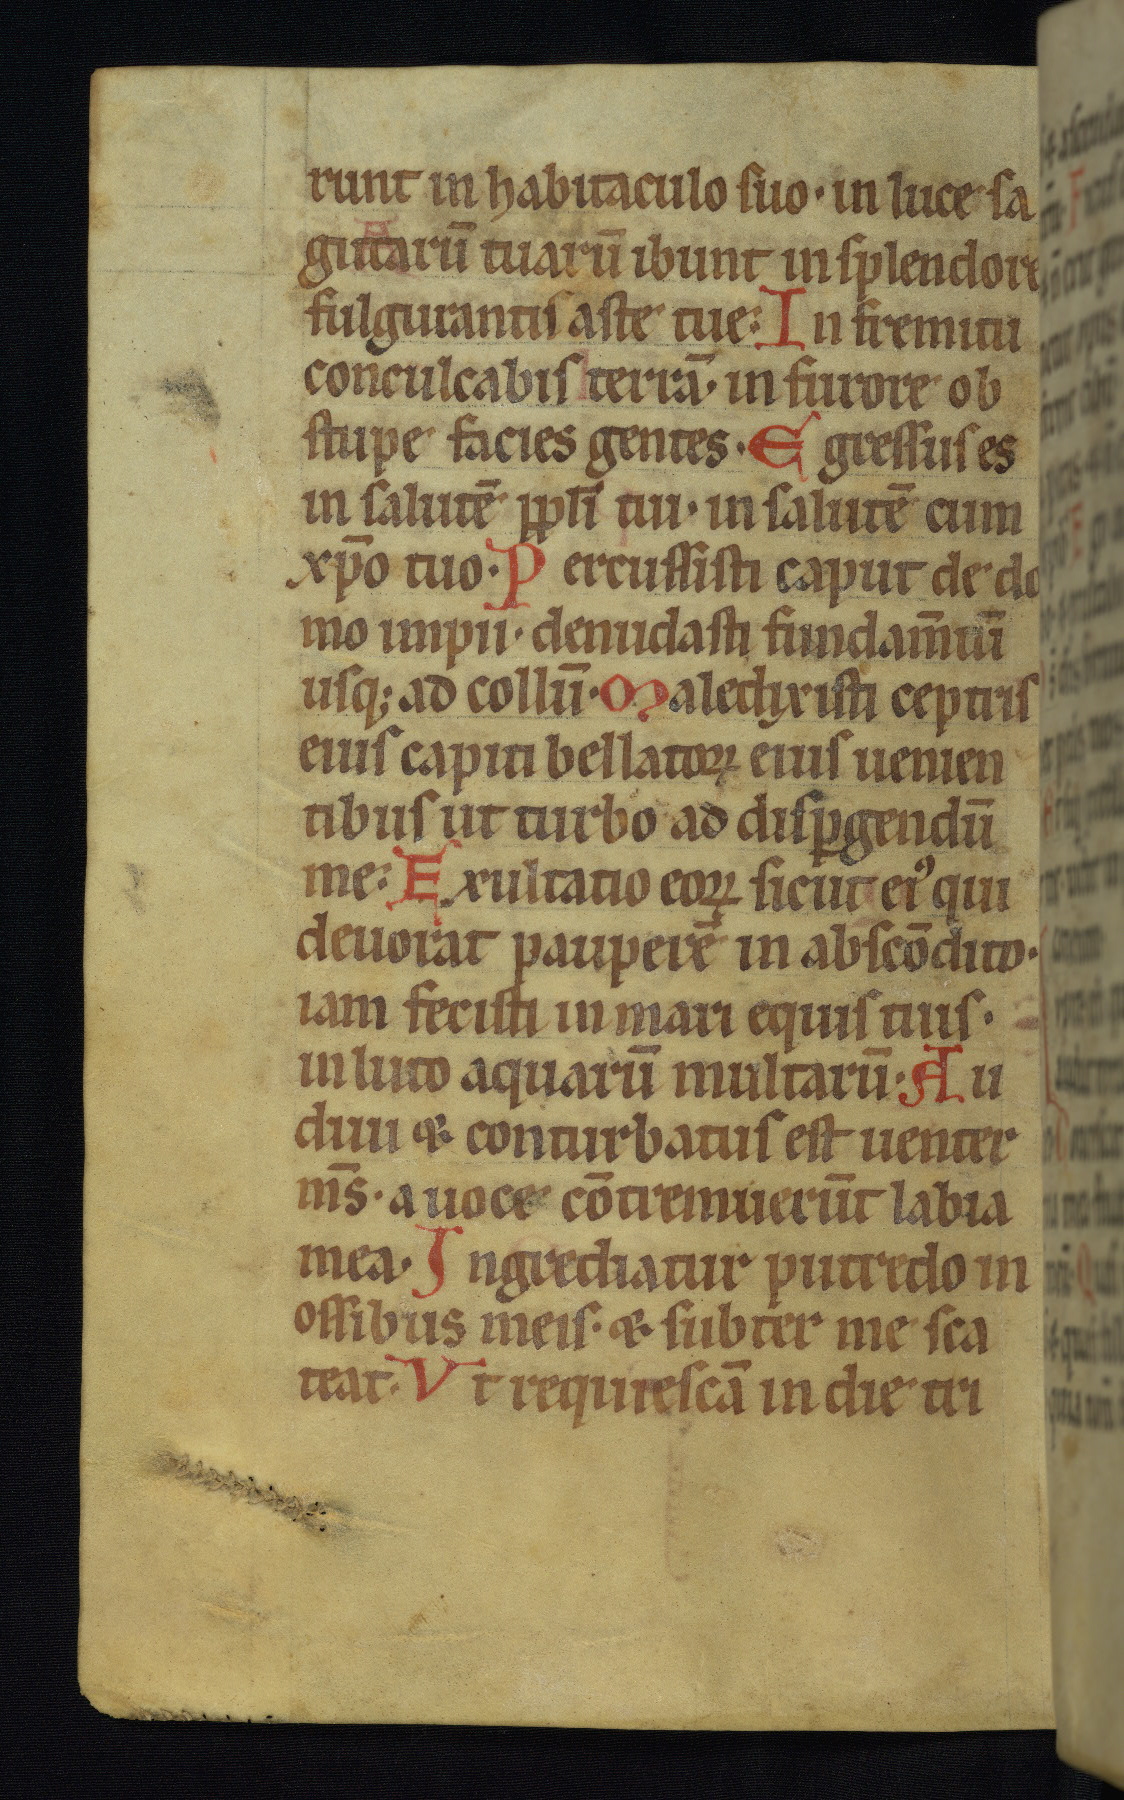 runt in habitaculo suo· in luce sa
gittarū tuarū ibunt in splendore
fulgurantis aste tue: In fremitu
conculcabis terrā· in furore ob
stupe facies gentes· Egressus es
in salutē ppl̄i tui· in salutē cum
xp̄o tuo· Percussisti caput de do
mo impii· denudasti fundam̄tū
usq; ad collū· Maledixisti ceptris
eius capiti bellatoꝝ eius uenien
tibus ut turbo ad disꝑgendū
me: Exultatio eoꝝ sicut eiꝰ qui
deuorat pauperē in abscōdito·
iam fecisti in mari equis tuis·
in luto aquarū multarū· Au
diui & conturbatus est uenter
m̄s· a uoce cōtremuerūt labia
mea· Ingrediatur putredo in
ossibus meis· & subter me sca
teat· Vt requiescā in die tri